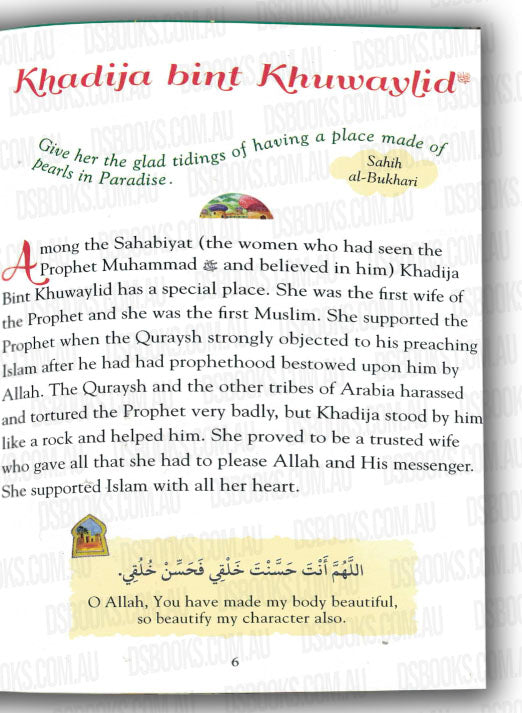 Khadija bint Khuwaylid
Give her the glad tidings of having a place made of
pearls in Paradise.
Sahih
al-Bukhari
Among the Sahabiyat (the women who had seen the
Prophet Muhammad ﷺ and believed in him) Khadija
Bint Khuwaylid has a special place. She was the first wife of
the Prophet and she was the first Muslim. She supported the
Prophet when the Quraysh strongly objected to his preaching
Islam after he had had prophethood bestowed upon him by
Allah. The Quraysh and the other tribes of Arabia harassed
and tortured the Prophet very badly, but Khadija stood by him
like a rock and helped him. She proved to be a trusted wife
who gave all that she had to please Allah and His messenger.
She supported Islam with all her heart.
اللَّهُمَّ أَنْتَ حَسَّنْتَ خَلْقِي فَحَسِّنْ خُلُقِي.
O Allah, You have made my body beautiful,
so beautify my character also.
6
DSBOOKS.COM.AU